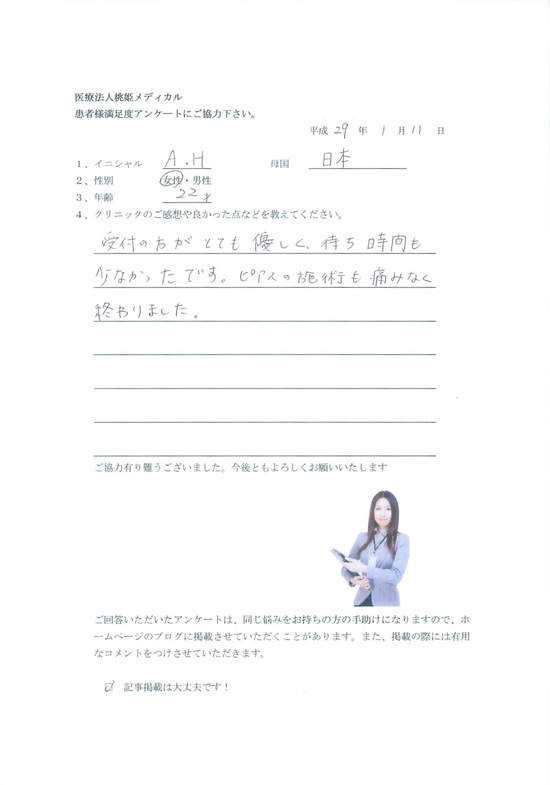 医療法人桃姫メディカル
患者様満足度アンケートにご協力下さい。
平成 29 年 1 月 11 日
1、イニシャル A.H 母国 日本
2、性別 女性・男性
3、年齢 22才
4、クリニックのご感想や良かった点などを教えてください。
受付の方がとても優しく、待ち時間も
少なかったです。ピアスの施術も痛みなく
終わりました。
ご協力有り難うございました。今後ともよろしくお願いいたします
ご回答いただいたアンケートは、同じ悩みをお持ちの方の手助けになりますので、ホ
ームページのブログに掲載させていただくことがあります。また、掲載の際には有用
なコメントをつけさせていただきます。
☑ 記事掲載は大丈夫です！